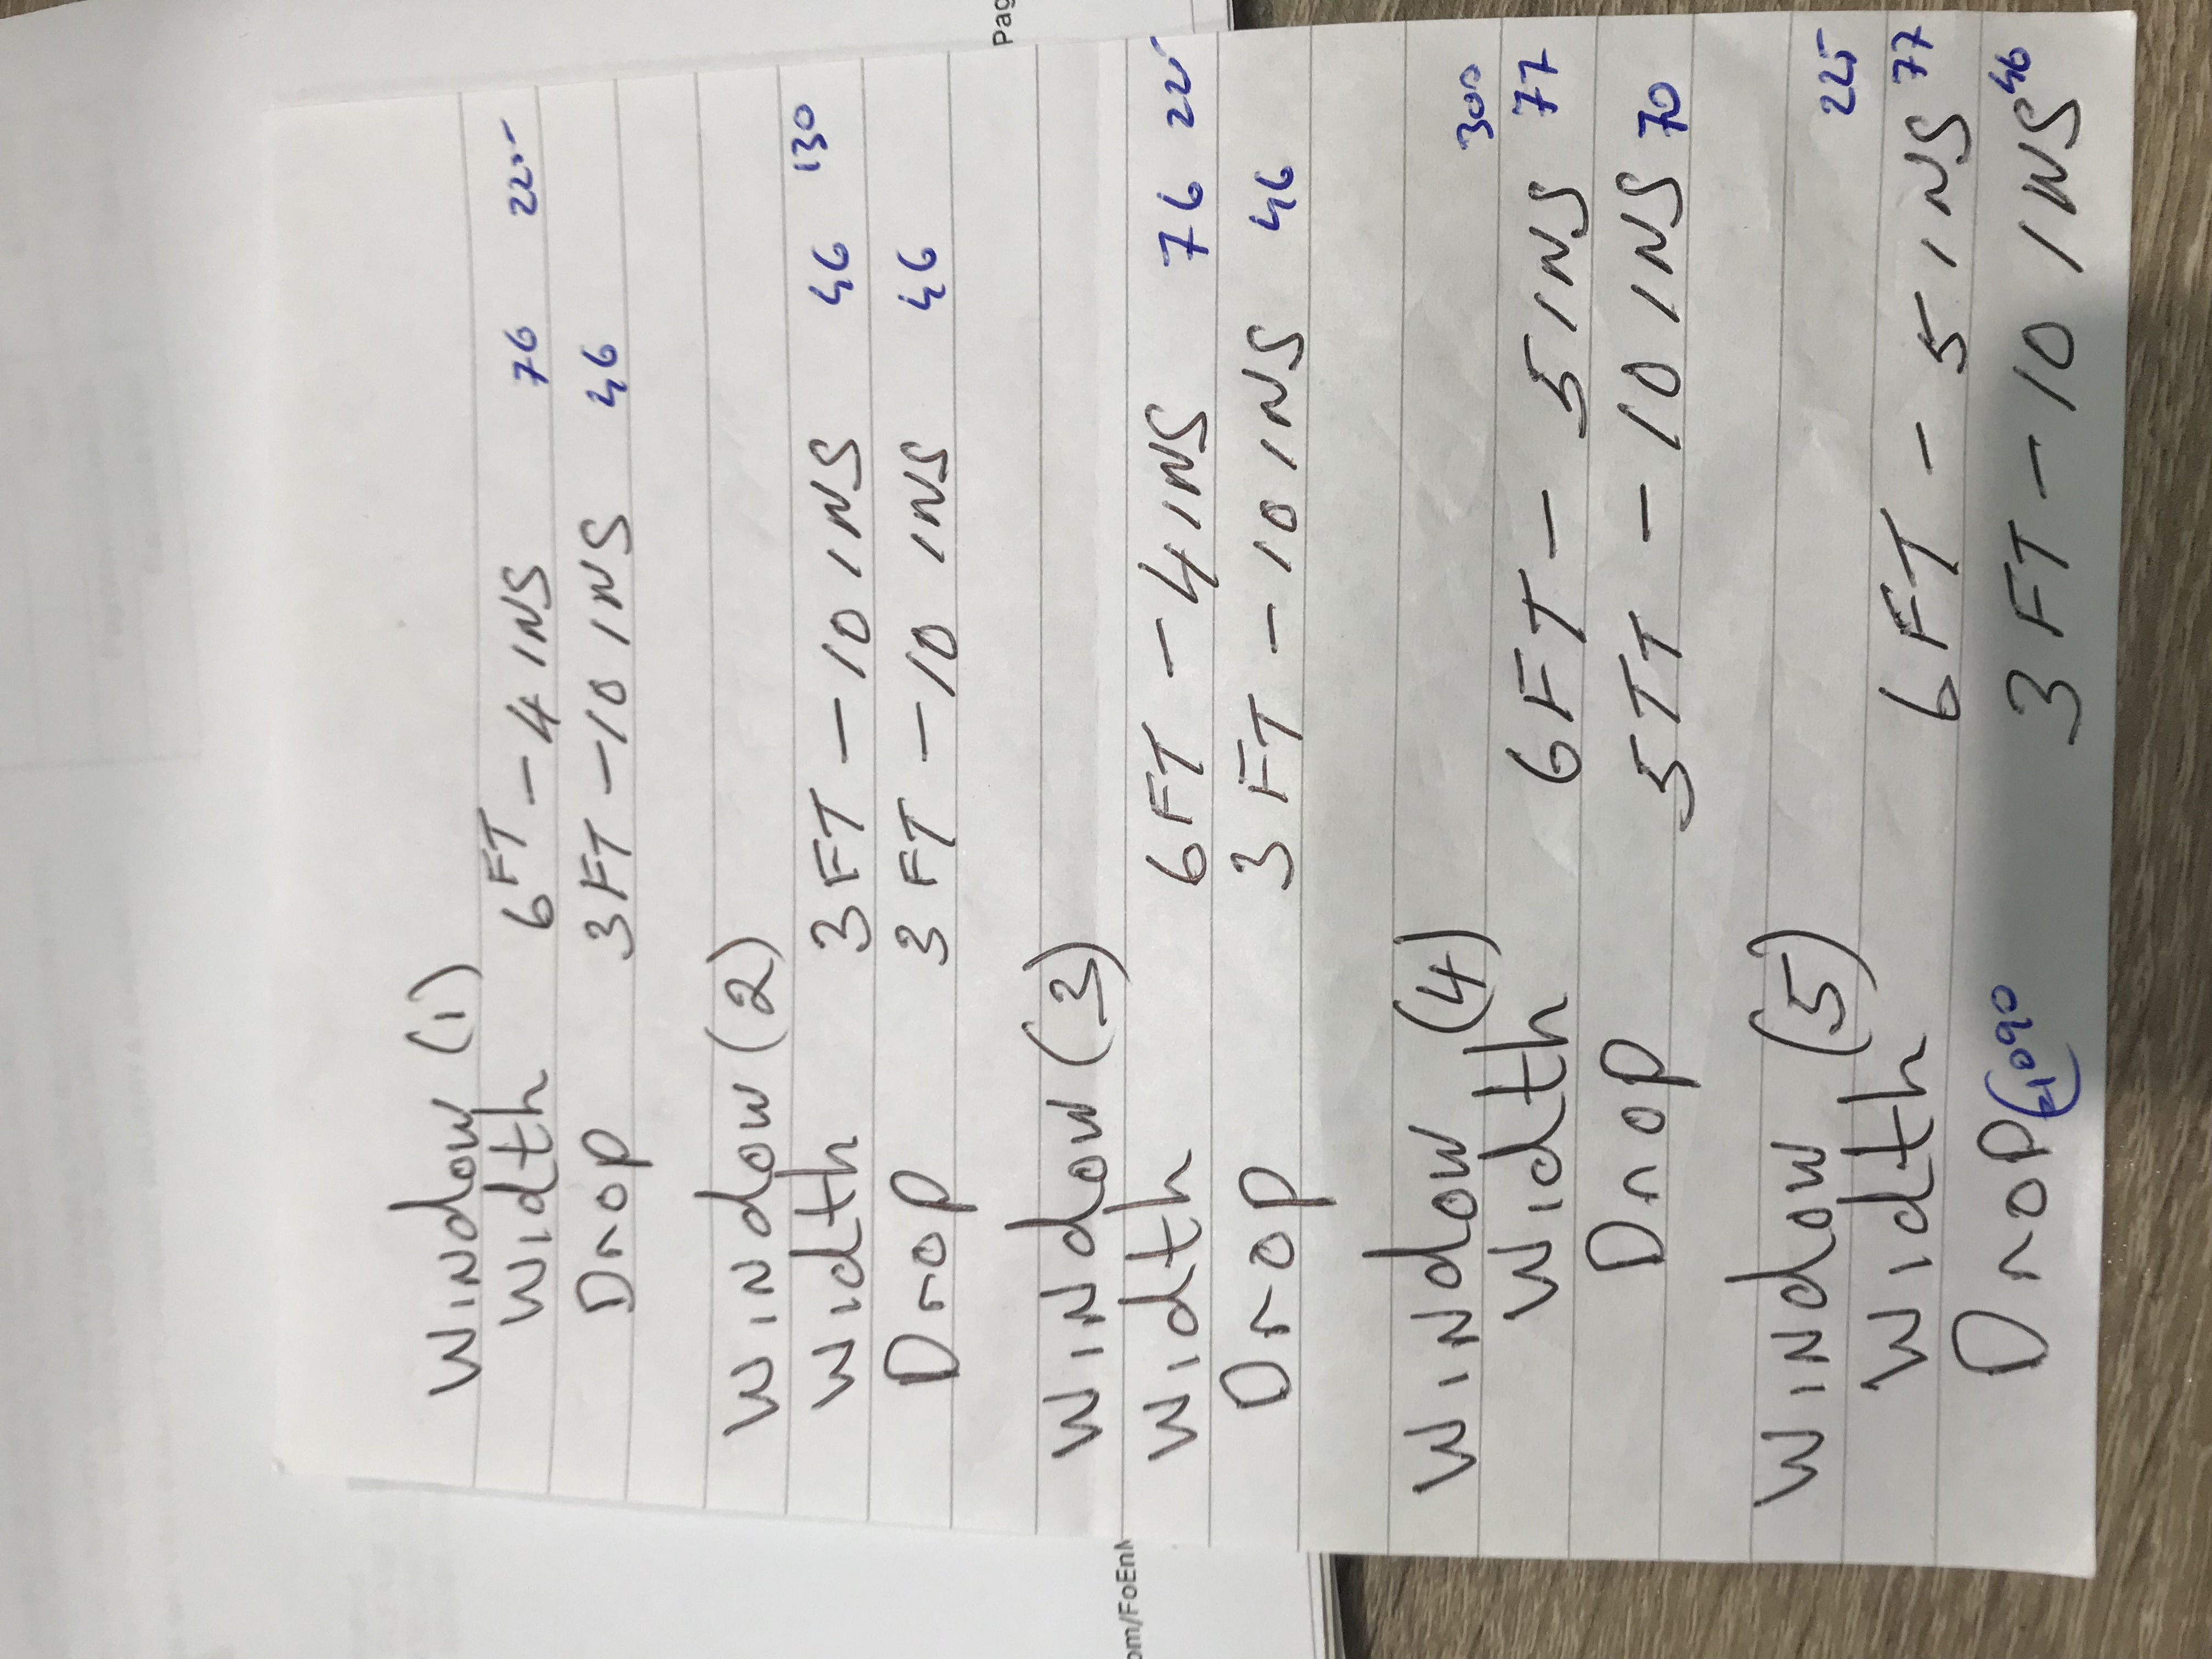 Window (1)
Width 6FT - 4 INS 76 225
Drop 3FT - 10 INS 46
Window (2)
Width 3FT - 10 INS 46 130
Drop 3 FT - 10 INS 46
Window (3)
Width 6FT - 4 INS 76 225
Drop 3 FT - 10 INS 46
Window (4) 300
Width 6FT - 5 INS 77
Drop 5TT - 10 INS 70
Window (5) 225
Width 6FT - 5 INS 77
Drop 3 FT - 10 INS 46
Pag
om/FoEnM